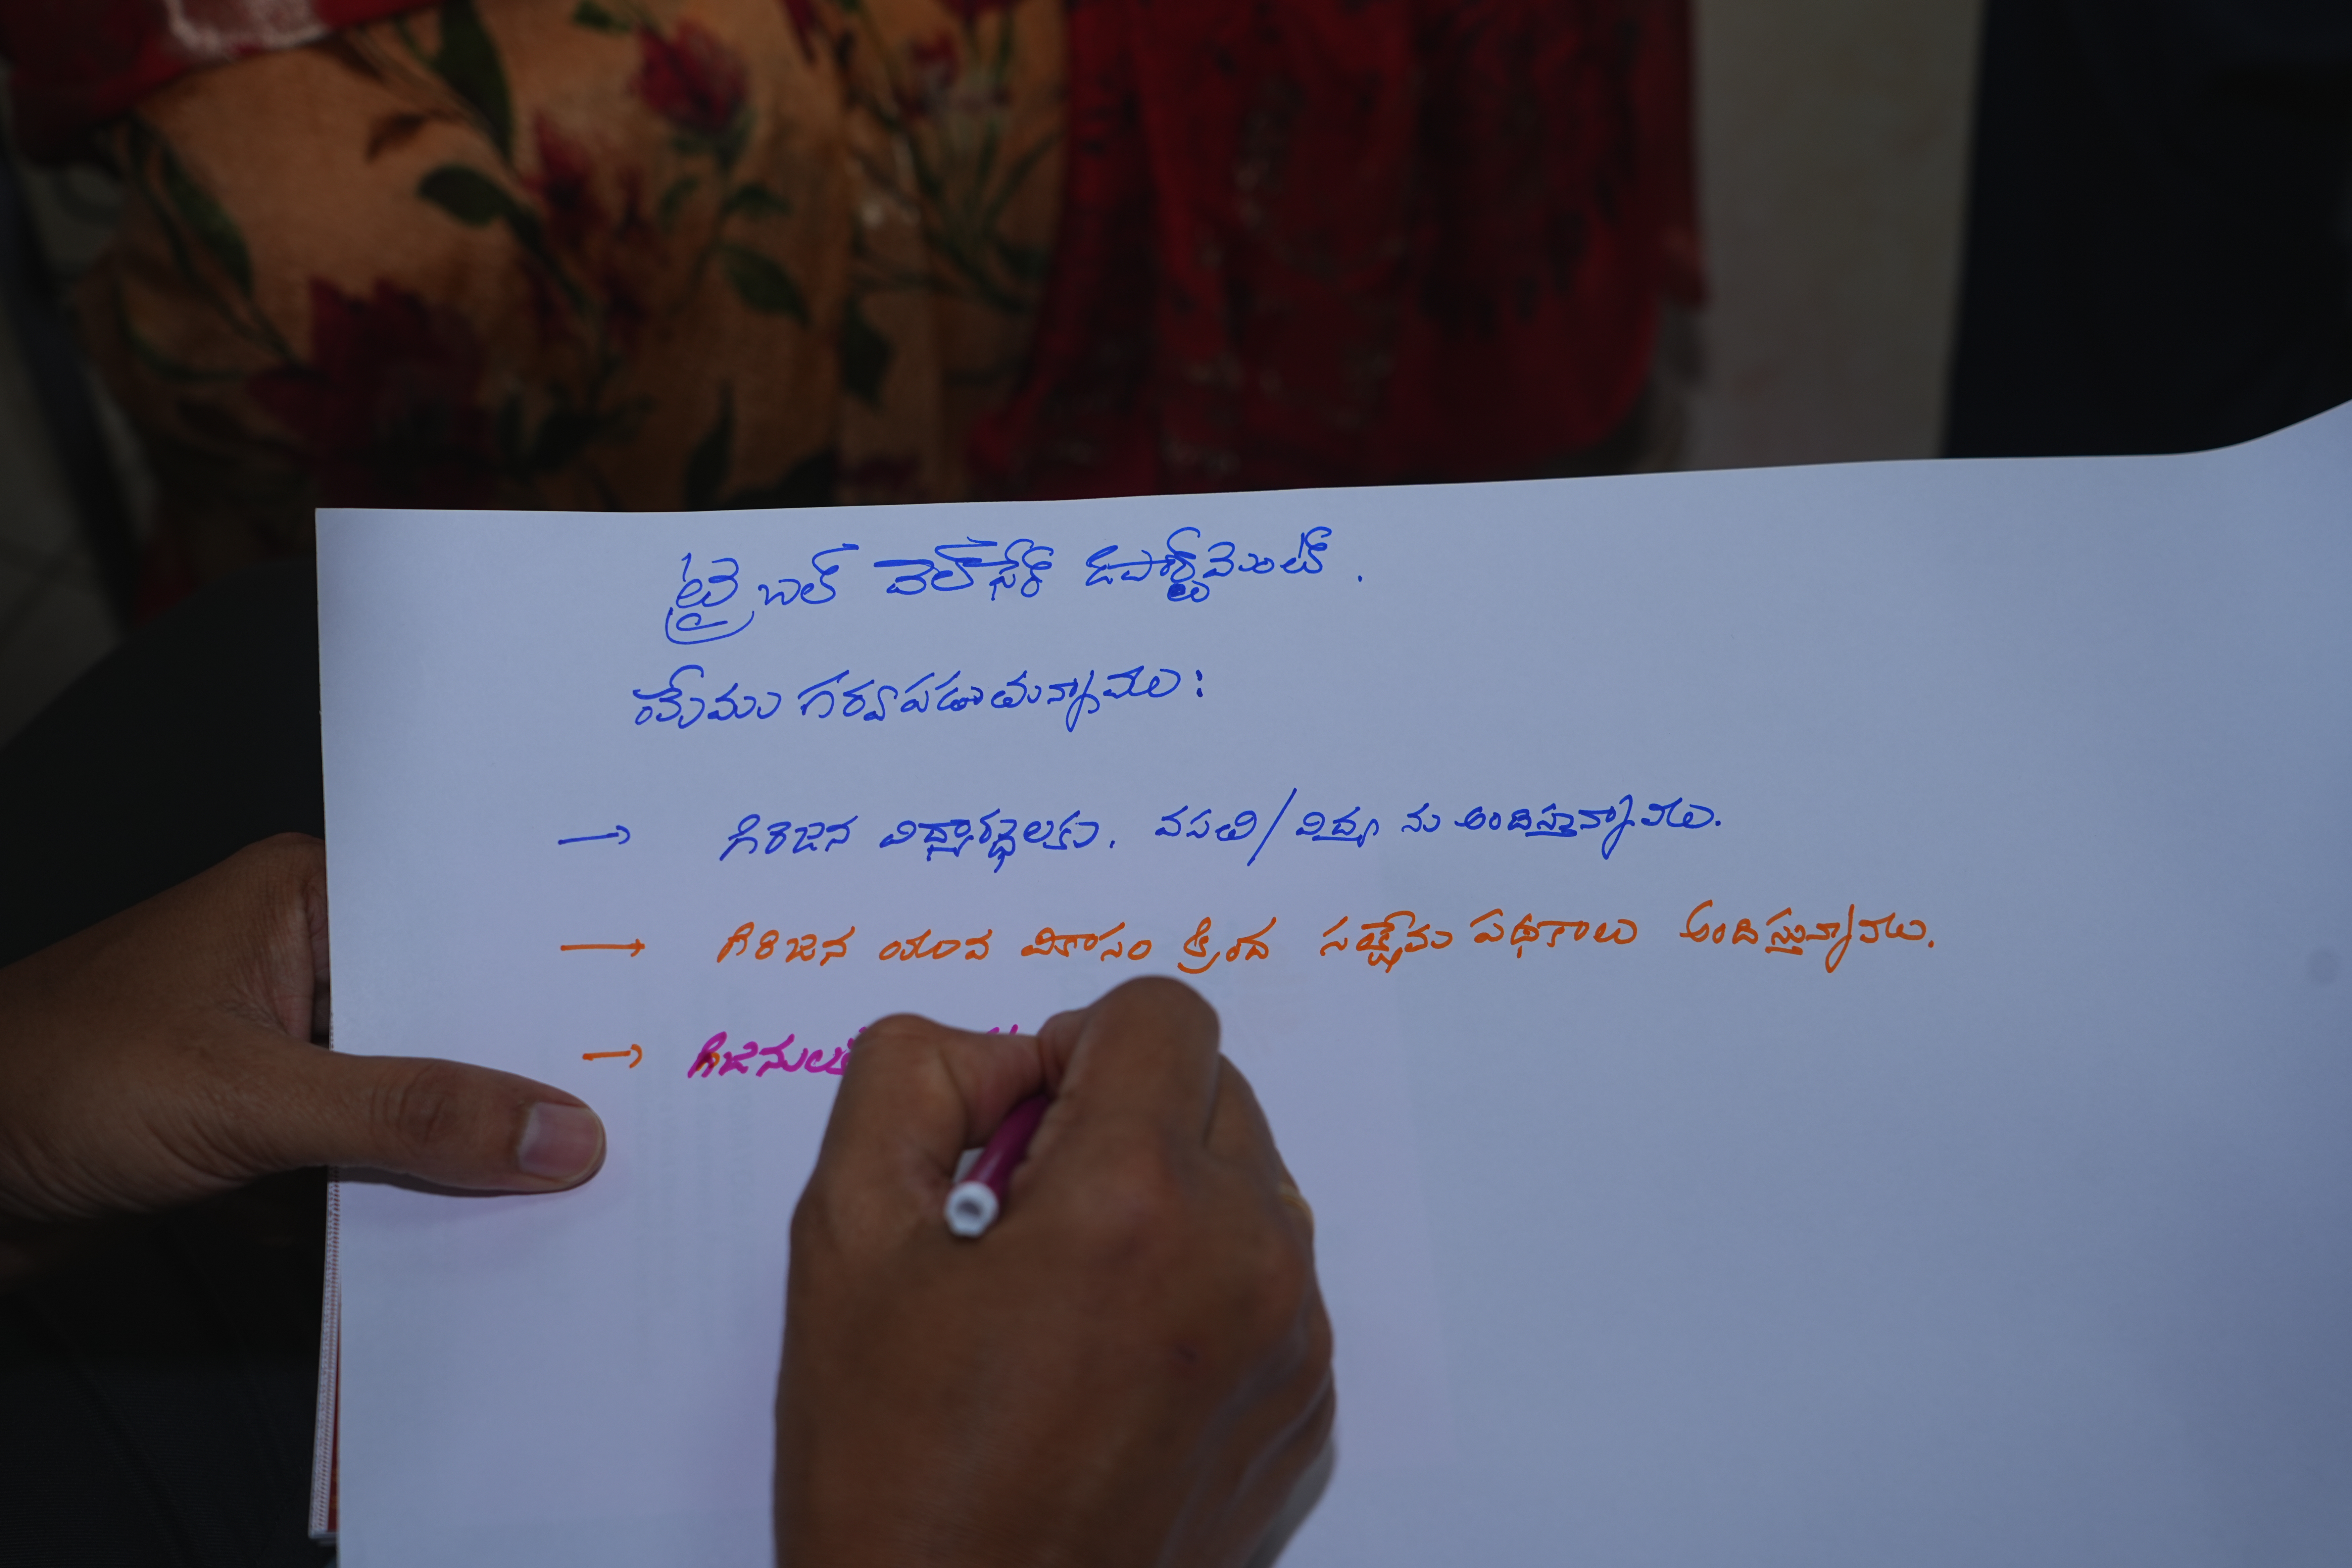 ట్రైబల్ వెల్ఫేర్ డిపార్ట్మెంట్.
మేము గర్వపడుతున్నాము:
→ గిరిజన విద్యార్థులకు, వసతి/విద్య ను అందిస్తున్నాము.
→ గిరిజన యువ వికాసం క్రింద సంక్షేమ పథకాలు అందిస్తున్నాము.
→